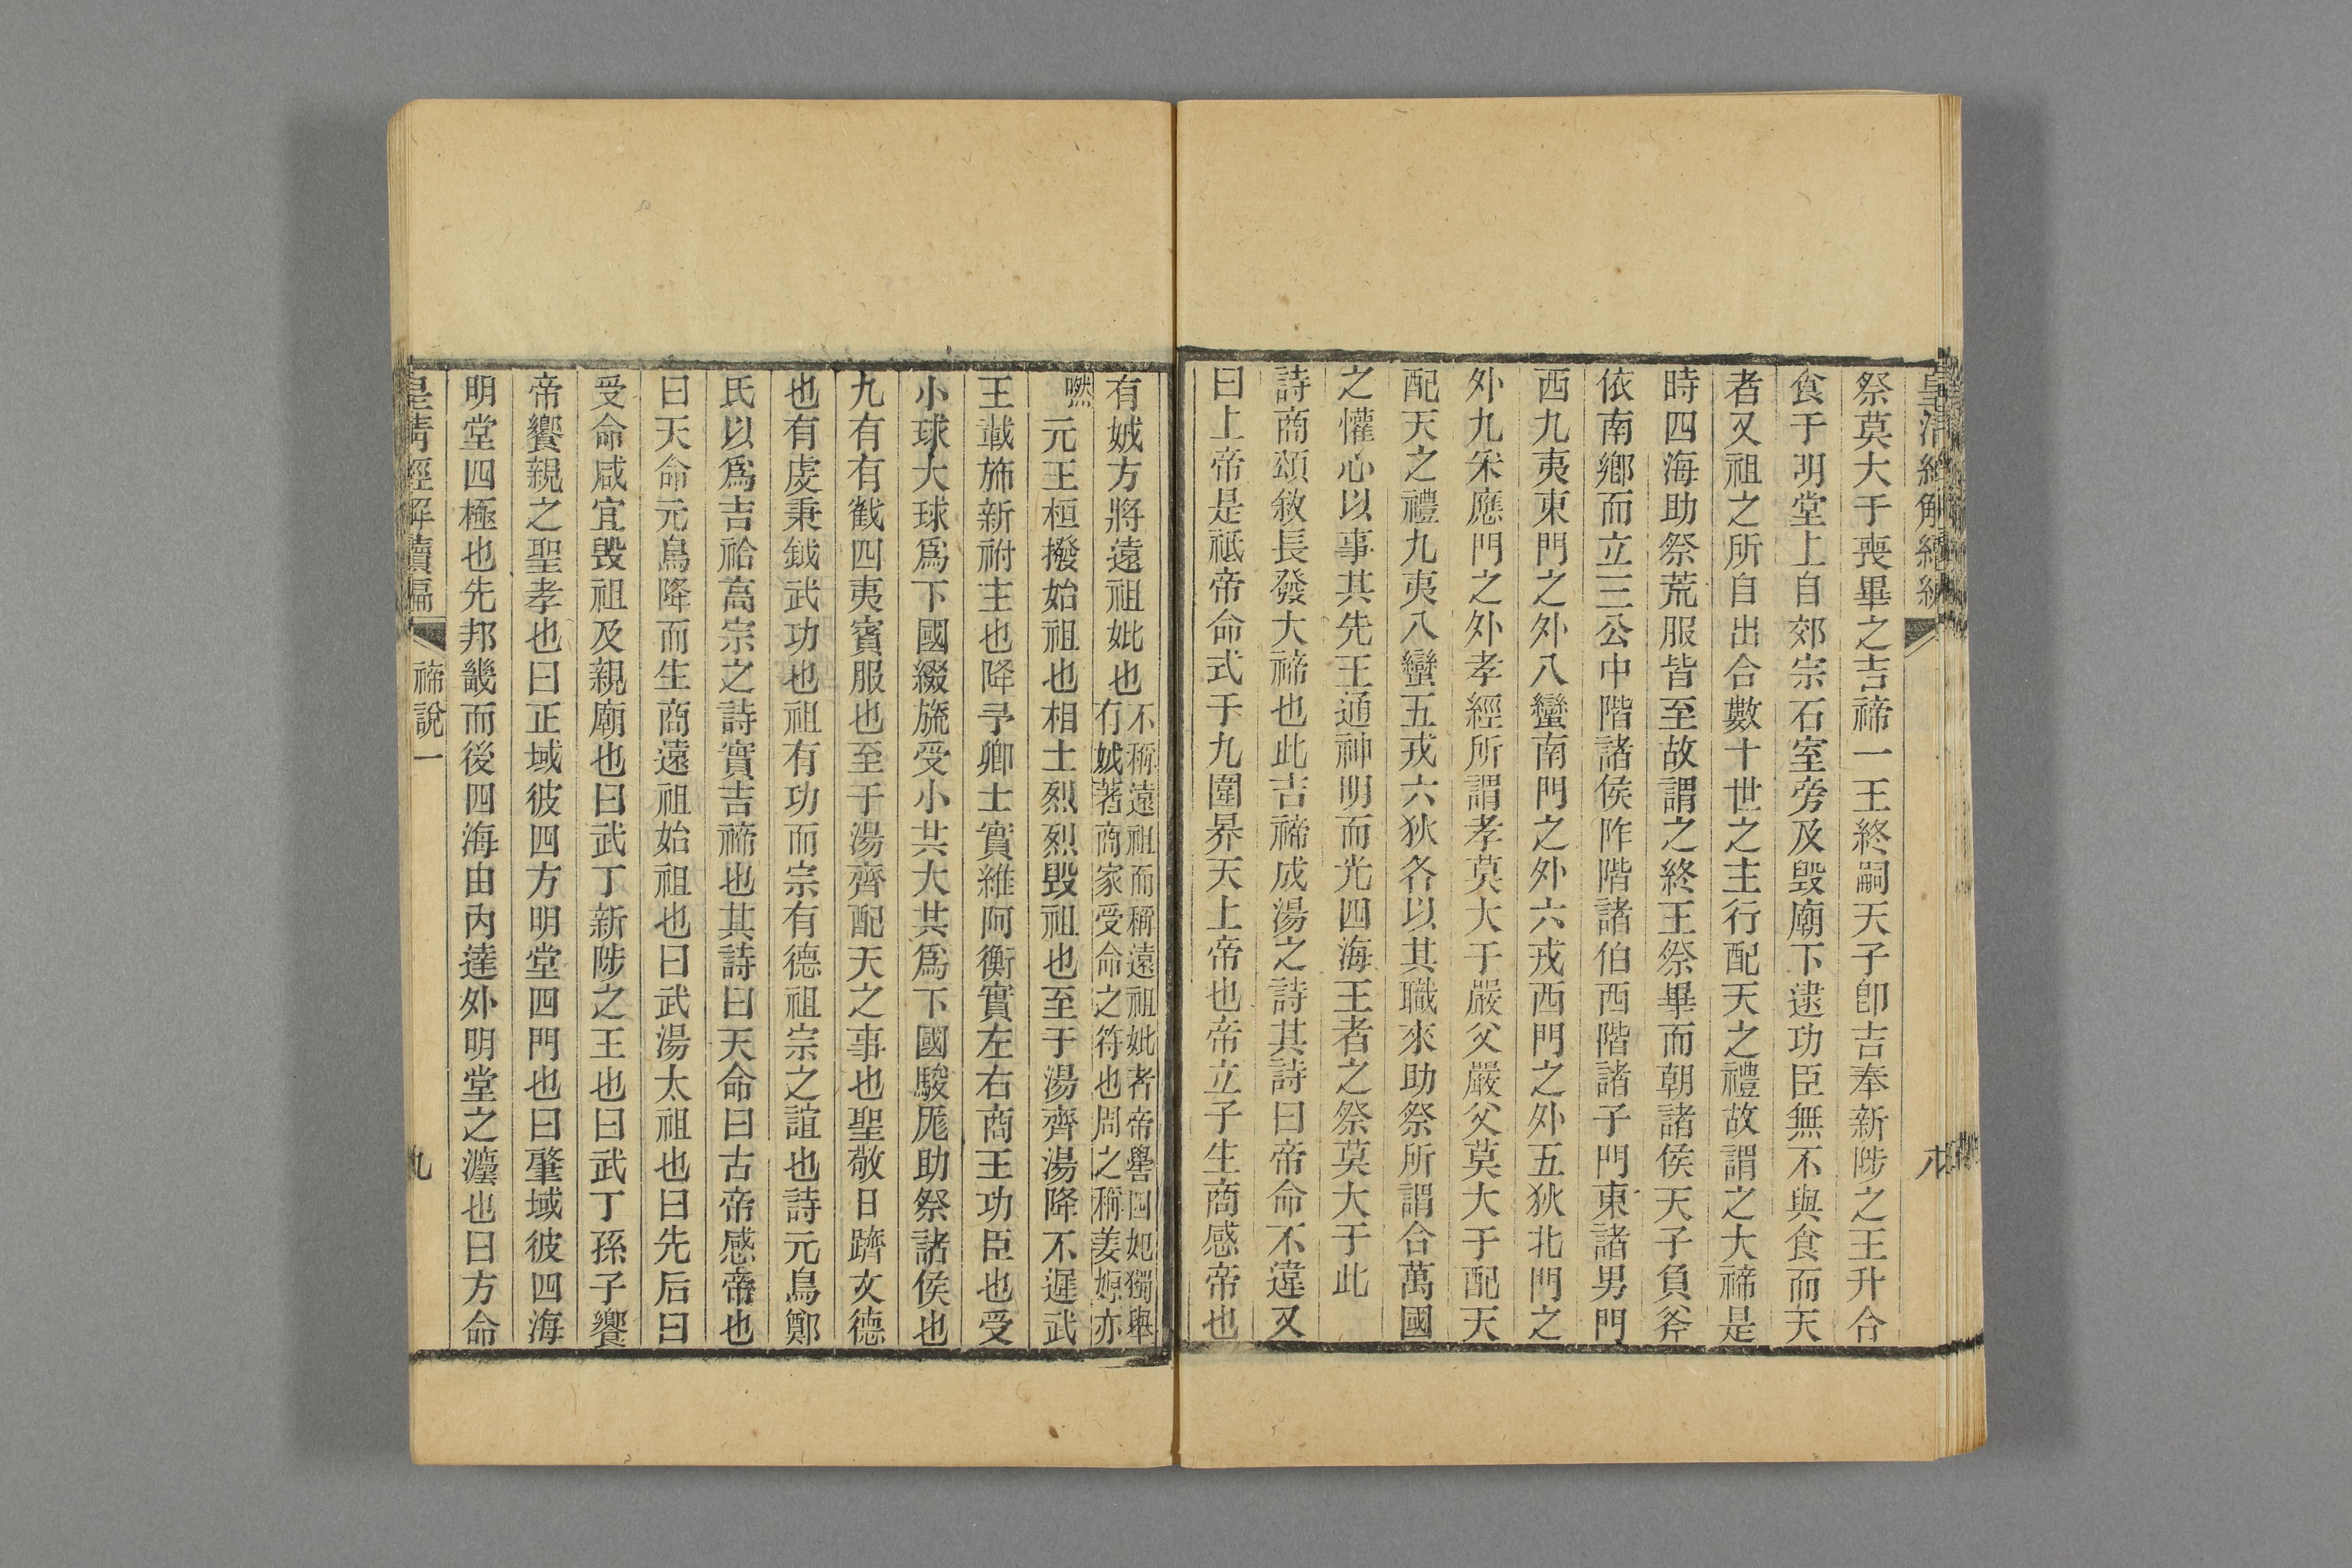 皇清經解續編
八
祭莫大于喪畢之吉禘一王終嗣天子卽吉奉新陟之王升合
食于明堂上自郊宗石室旁及毀廟下逮功臣無不與食而天
者又祖之所自出合數十世之主行配天之禮故謂之大禘是
時四海助祭荒服皆至故謂之終王祭畢而朝諸侯天子負斧
依南鄉而立三公中階諸侯阼階諸伯西階諸子門東諸男門
西九夷東門之外八蠻南門之外六戎西門之外五狄北門之
外九采應門之外孝經所謂孝莫大于嚴父嚴父莫大于配天
配天之禮九夷八蠻五戎六狄各以其職來助祭所謂合萬國
之懽心以事其先王通神明而光四海王者之祭莫大于此
詩商頌敘長發大禘也此吉禘成湯之詩其詩曰帝命不違又
曰上帝是祗帝命式于九圍昇天上帝也帝立子生商感帝也
有娀方將遠祖妣也不稱遠祖而稱遠祖妣者帝嚳四妃獨舉
有娀著商家受命之符也周之稱姜嫄亦
然 元王桓撥始祖也相土烈烈毀祖也至于湯齊湯降不遲武
王載斾新祔主也降予卿士實維阿衡實左右商王功臣也受
小球大球爲下國綴旒受小共大共爲下國駿厖助祭諸侯也
九有有截四夷賓服也至于湯齊配天之事也聖敬日躋文德
也有虔秉鉞武功也祖有功而宗有德祖宗之誼也詩元鳥鄭
氏以爲吉祫高宗之詩實吉禘也其詩曰天命曰古帝感帝也
曰天命元鳥降而生商遠祖始祖也曰武湯太祖也曰先后曰
受命咸宜毀祖及親廟也曰武丁新陟之王也曰武丁孫子饗
帝饗親之聖孝也曰正域彼四方明堂四門也曰肇域彼四海
明堂四極也先邦畿而後四海由內達外明堂之灋也曰方命
皇清經解續編
禘說一
九